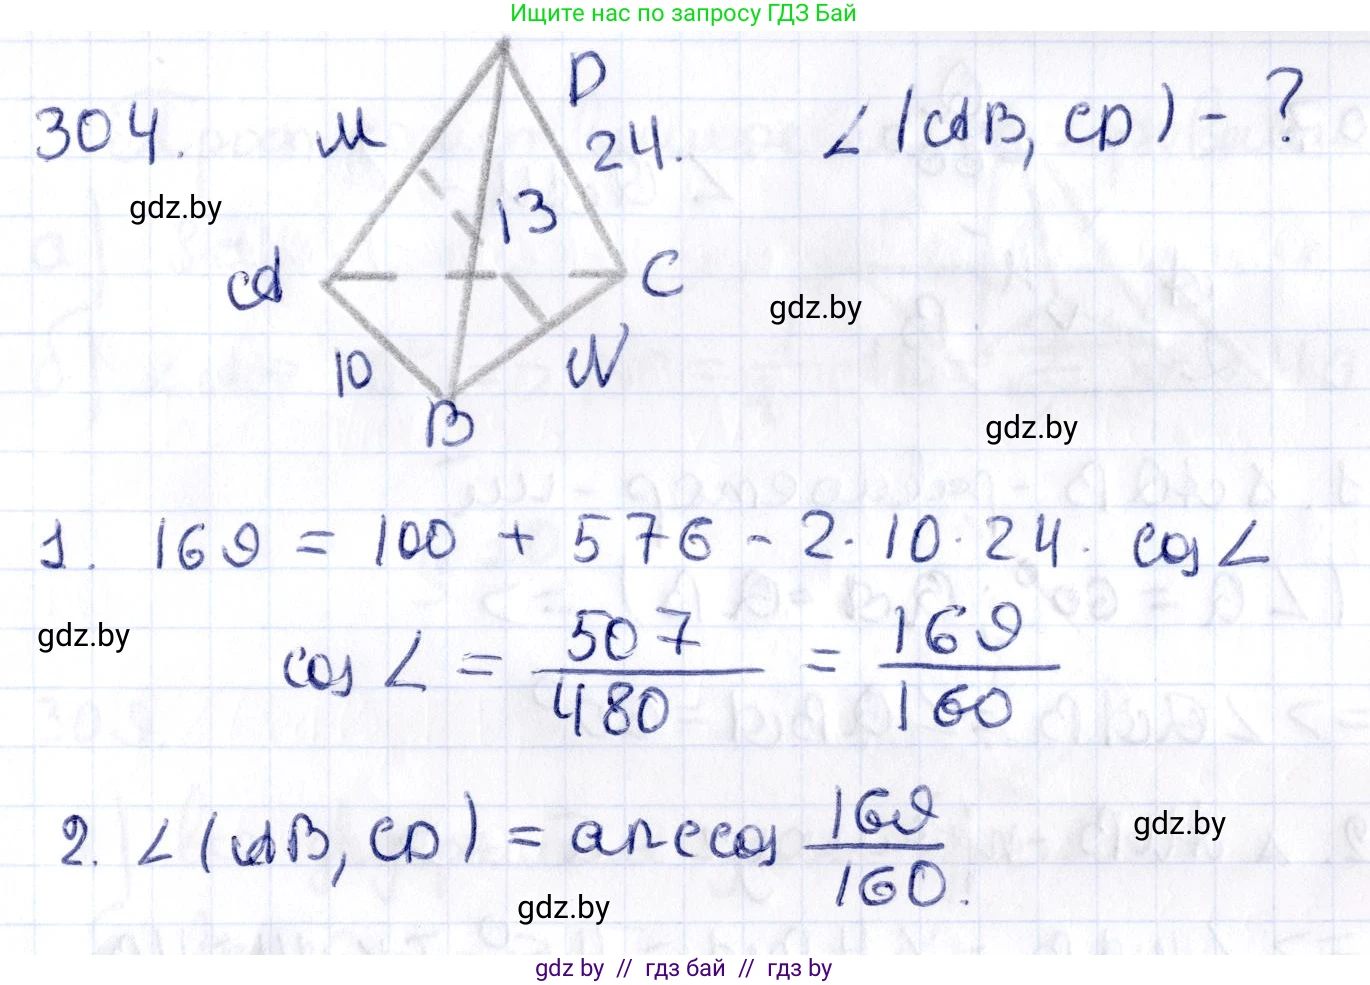 Ищите нас по запросу ГДЗ Бай
304.
M
D
24.
∠(AB, CD) - ?
gdz.by
13
A
C
gdz.by
10
N
B
gdz.by
1. 169 = 100 + 576 - 2·10·24· cos∠
gdz.by
cos∠ = 507/480 = 169/160
2. ∠(AB, CD) = arccos 169/160.
gdz.by
gdz.by
gdz by // гдз бай // гдз by